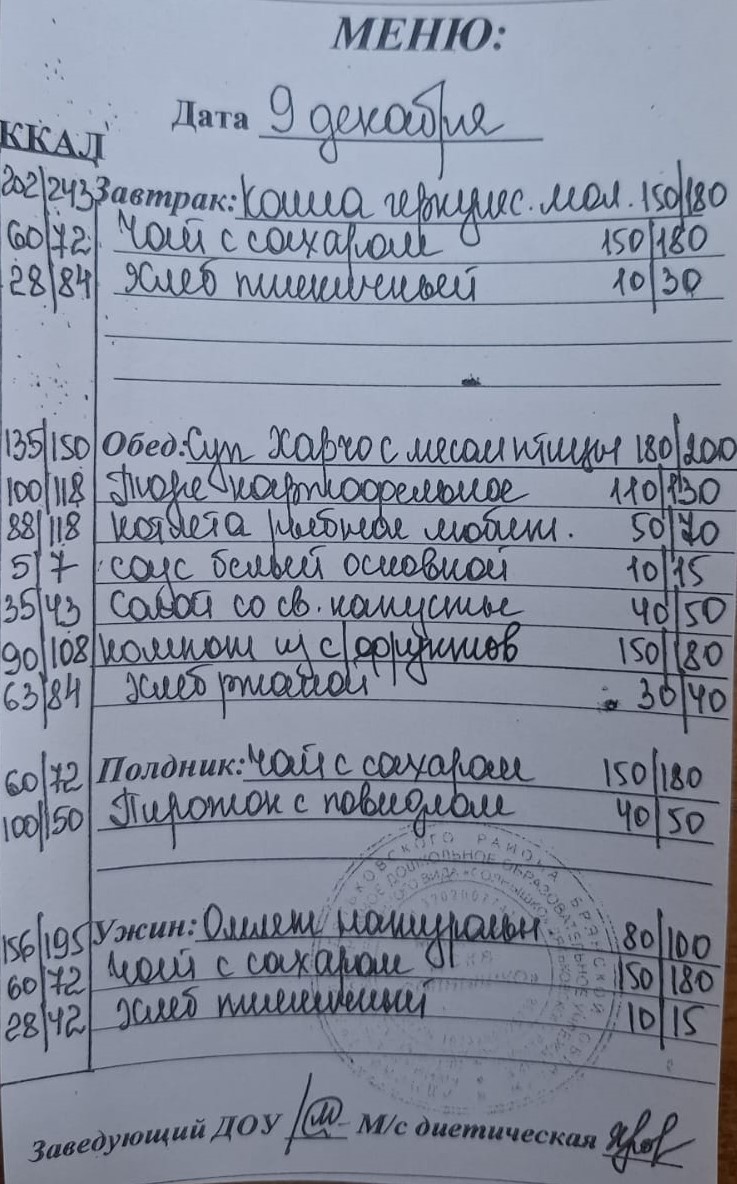 МЕНЮ:
Дата 9 декабря
ККАЛ
202/243 Завтрак: Каша геркулес. мол. 150/180
60/72 Чай с сахаром 150/180
28/84 Хлеб пшеничный 10/30
135/150 Обед: Суп Харчо с мясом птицы 180/200
100/118 Пюре картофельное 110/130
88/118 котлета рыбная любит. 50/70
5/7 соус белый основной 10/15
35/43 Салат со св. капусты 40/50
90/108 компот из с/фруктов 150/180
63/84 Хлеб ржаной 30/40
60/72 Полдник: Чай с сахаром 150/180
100/150 Пирожок с повидлом 40/50
156/195 Ужин: Омлет натуральн 80/100
60/72 Чай с сахаром 150/180
28/42 Хлеб пшеничный 10/15
Заведующий ДОУ М/с диетическая